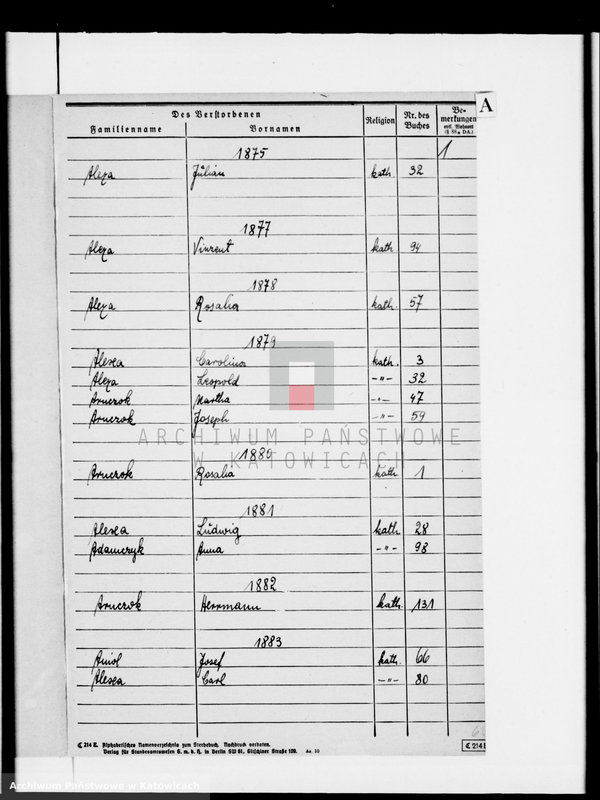 A
Des Verstorbenen
Familienname Vornamen Religion Nr. des Buches Bemerkungen
evtl. Wohnort
(§ 88a DA.)
1875 1
Alexa Julian kath. 32
1877
Alexa Vinzent kath. 94
1878
Alexa Rosalia kath. 57
1879
Alexa Carolina kath. 3
Alexa Leopold -"- 32
Martha -"- 47
Joseph -"- 59
ARCHIWUM PAŃSTWOWE
W KATOWICACH
1880
Rosalia kath. 1
1881
Alexa Ludwig kath. 28
Adamczyk Anna -"- 98
1882
Herrmann kath. 131
1883
Aniol Josef kath. 66
Alexa Carl -"- 80
C 214 E. Alphabetisches Namenverzeichnis zum Sterbebuch. Nachdruck verboten.
Verlag für Standesamtswesen G. m. b. H. in Berlin SW 61, Gitschiner Straße 109. Aa. 10
C 214 E
Archiwum Państwowe w Katowicach